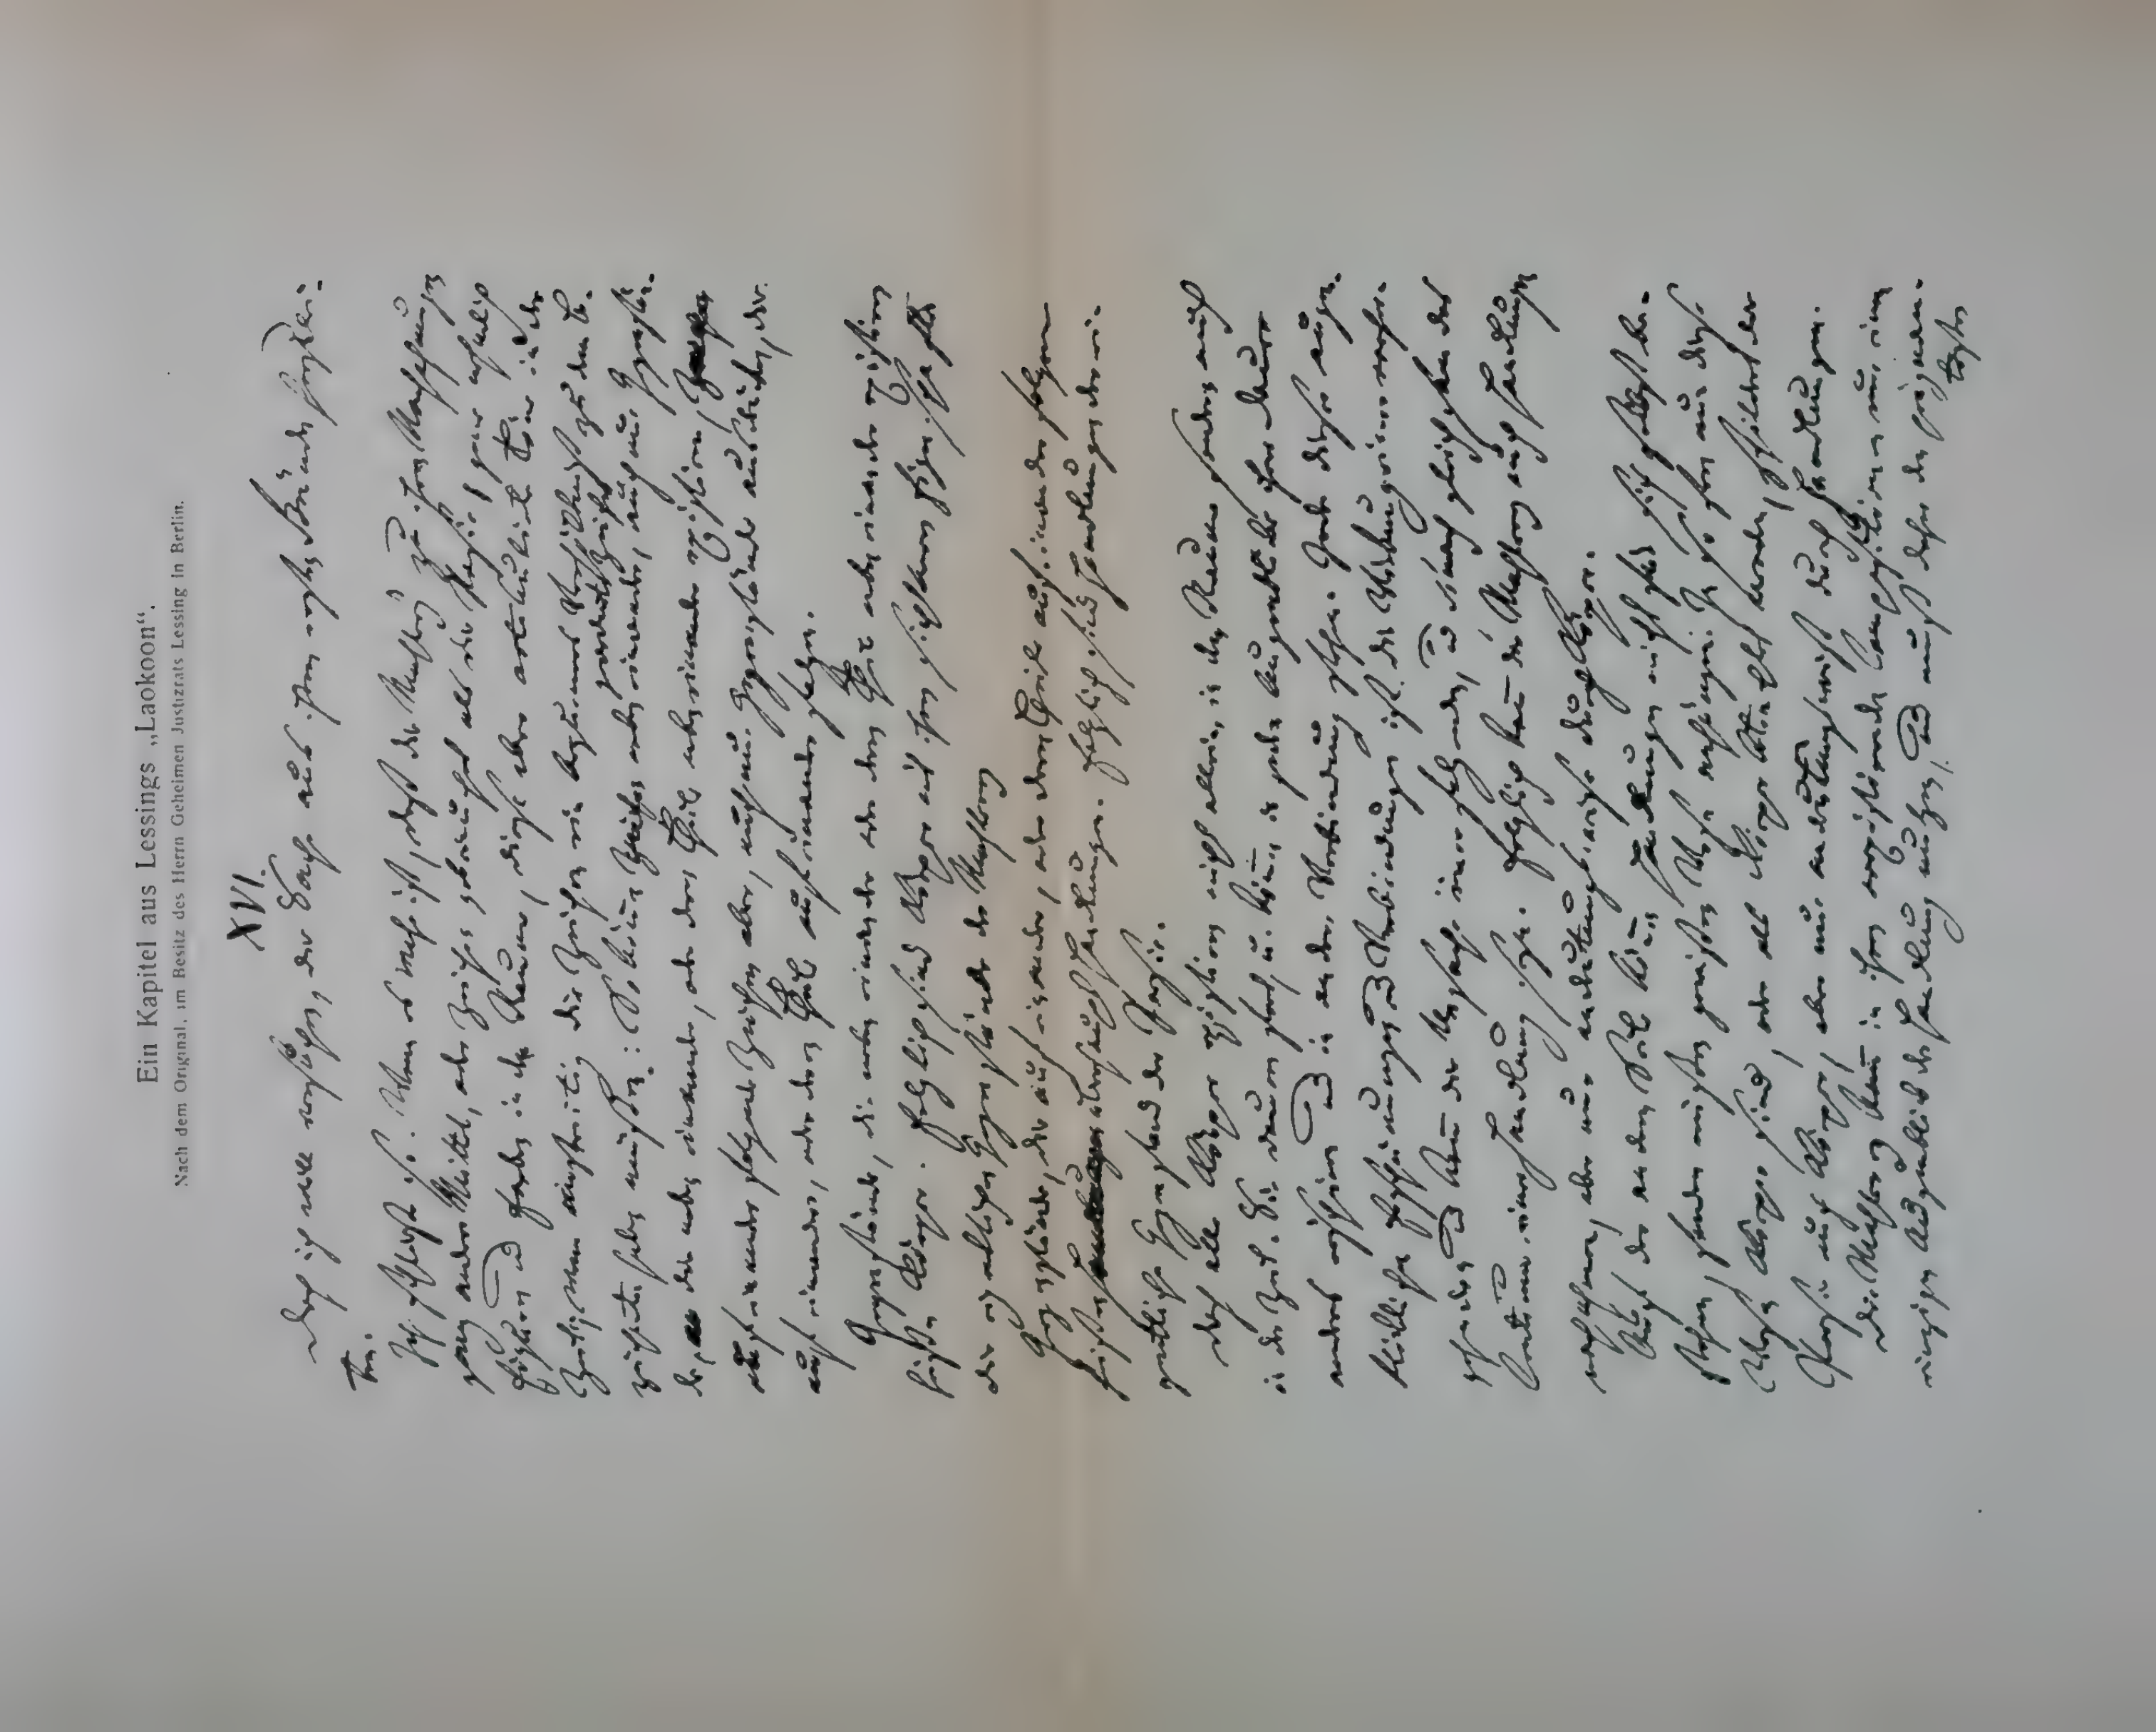 Ein Kapitel aus Lessings „Laokoon“.
Nach dem Original, im Besitz des Herrn Geheimen Justizrats Lessing in Berlin.
XVI.
Doch ich will versuchen, die Sache aus ihren ersten Gründen herzulei-
ten.
Ich schließe so. Wenn es wahr ist, daß die Mahlerey zu ihren Nachahmungen
ganz andere Mittel, oder Zeichen gebrauchet als die Poesie; jene nehmlich
Figuren und Farben in dem Raume, diese aber artikulirte Töne in der
Zeit; wenn unstreitig die Zeichen ein bequemes Verhältniß zu dem Be-
geordnete Zeichen
zeichneten haben müssen: So können neben einander, auch nur Gegenstän-
de, die neben einander, oder deren Theile neben einander existiren,
auf einander folgende Zeichen aber, auch nur Gegenstände ausdrücken, die
auf einander, oder deren Theile auf einander folgen.
Gegenstände, die neben einander oder deren Theile neben einander existiren
heissen Körper. Folglich sind Körper mit ihren sichtbaren Eigenschaften
die eigentlichen Gegenstände der Mahlerey
Gegenstände, die auf einander, oder deren Theile auf einander folgen
heissen überhaupt Handlungen. Folglich sind Handlungen der ei-
gentliche Gegenstand der Poesie.
Doch alle Körper existiren nicht allein in dem Raume sondern auch
in der Zeit. Sie dauern fort, u. können in jedem Augenblicke ihrer Dauer
anders erscheinen und in andrer Verbindung stehen. Jede dieser augen-
blicklichen Erscheinungen und Verbindungen ist die Wirkung einer vorher-
gehenden, und kann die Ursache einer folgenden, und sonach gleichsam das
Centrum einer Handlung seyn. Folglich kann die Mahlerey auch Handlungen
nachahmen, aber nur andeutungsweise durch Körper.
Auf der andern Seite können Handlungen nicht für sich selbst be-
stehen, sondern müssen gewissen Wesen anhängen. In so fern nun diese
Wesen Körper sind, oder als Körper betrachtet werden, schildert die
Poesie auch Körper, aber nur andeutungsweise durch Handlungen.
Die Mahlerey kann in ihren coexistirenden Compositionen nur einen
einzigen Augenblick der Handlung nutzen, und muß daher den prägnan-
testen